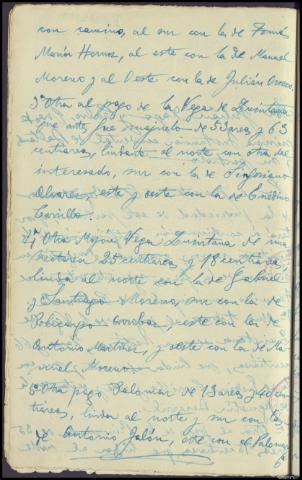 con camino, al sur con la de José
María Hornos, al este con la de Manuel
Moreno y al Oeste con la de Julián Orozco.
3ª Otra al pago de la Vega de Quintana
que ante fue majuelo de 53 areas y 63
centiareas, lindante al norte con otra del
interesado, sur con la de Sinforiano
Alvarez, este y oeste con la de
4ª Otra Vega Quintana de una
hectárea 25 centiareas y 18 centiareas,
linda al norte con la de Gabriel
y Santiago Moreno, sur con la de
Policarpo este con la de
Antonio Martinez, y oeste con la de Ma
nuel Moreno.
6ª Otra pago Palomar de 13 areas y 40 cen
tiareas, linda al norte, y sur con
de Antonio Jalón, este con el Palomar